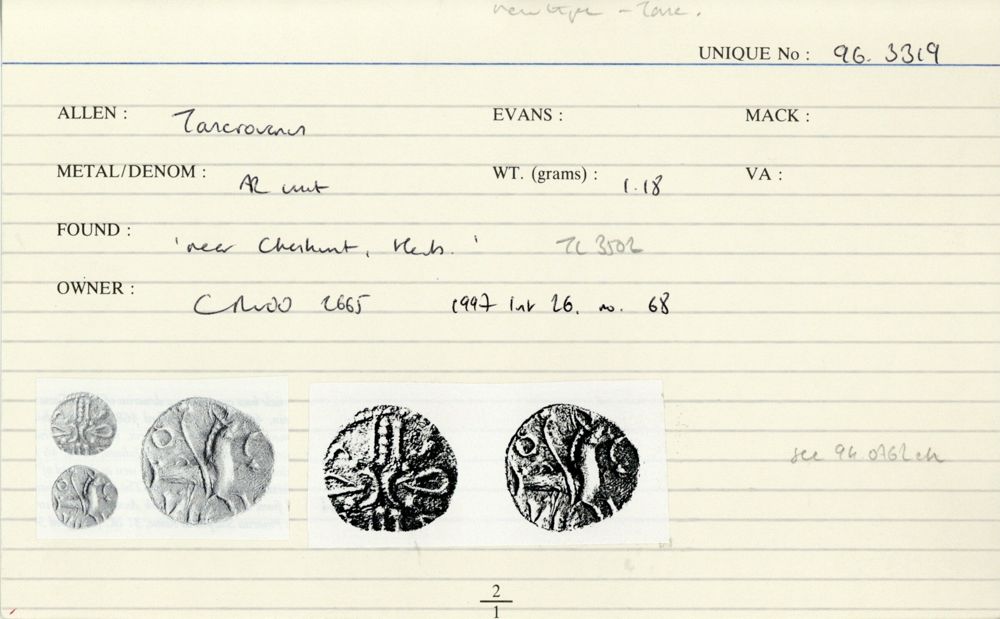 new type - Tasc.
UNIQUE No : 96. 3319
ALLEN : EVANS : MACK :
METAL/DENOM : AR unit WT. (grams) : 1.18 VA :
FOUND : 'near Cheshunt, Herts.' TL 3502
OWNER : 2665 1997 list 26, no. 68
see 94.0762 ch
2
1